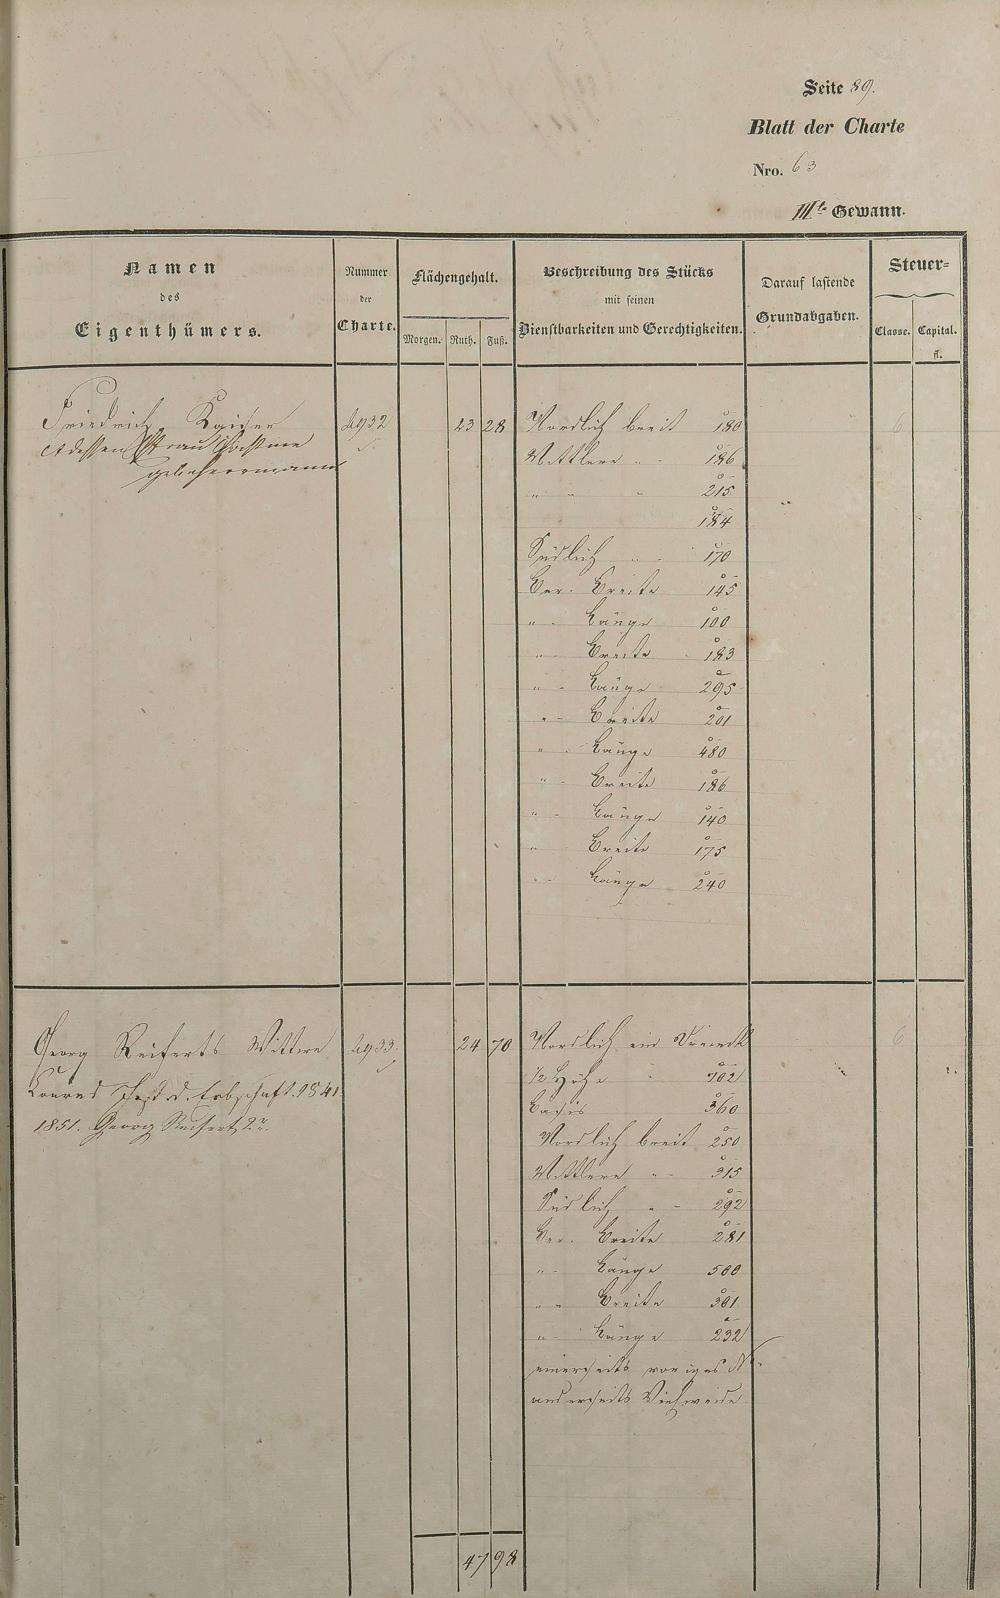 Seite 89.
Blatt der Charte
Nro. 63
IIIte Gewann.
Namen
des
Eigenthümers.
Nummer
der
Charte.
Flächengehalt.
Morgen. Ruth. Fuß.
Beschreibung des Stücks
mit seinen
Dienstbarkeiten und Gerechtigkeiten.
Darauf lastende
Grundabgaben.
Steuer=
Classe. Capital.
fl.
Friedrich Kaiser 2932 23 28 Nordlich breit 180 6
dessen Frau
Mittlere " - 186
" " " 215
184
Südlich " - 170
Ver. Breite 145
" - Länge 100
" - Breite 183
" - Länge 295
" - Breite 201
" - Länge 480
" - Breite 186
" - Länge 140
" - Breite 175
" - Länge 240
Georg Reiferts Wittwe 2933 24 70 Nordlich ein Dreieck 6
Konrad d. Erbschaft 1841
1851. Georg Reifert 2r.
1/2 Höhe " 102
Basis 360
Nordlich breit 250
Mittlere " - 315
Südlich " - 292
Ver. Breite 281
" - Länge 500
" - Breite 301
" - Länge 232
einerseits voriges N°.
anderseits Viehweide
47 98